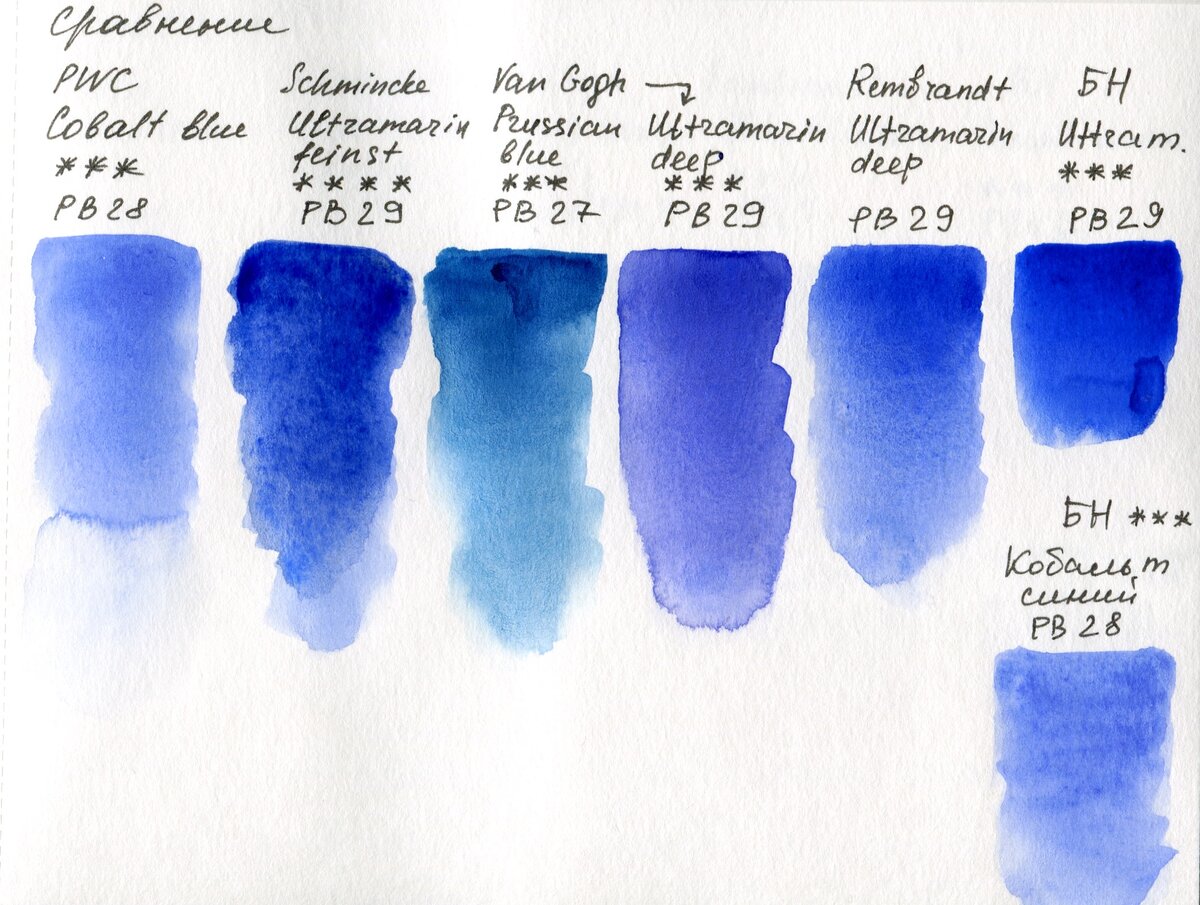 Сравнение
PWC
Cobalt blue
***
PB28
Schmincke
Ultramarin
feinst
****
PB29
Van Gogh →
Prussian
blue
***
PB27
Ultramarin
deep
***
PB29
Rembrandt
Ultramarin
deep
PB29
БН
Ultram.
***
PB29
БН ***
Кобальт
синий
PB28